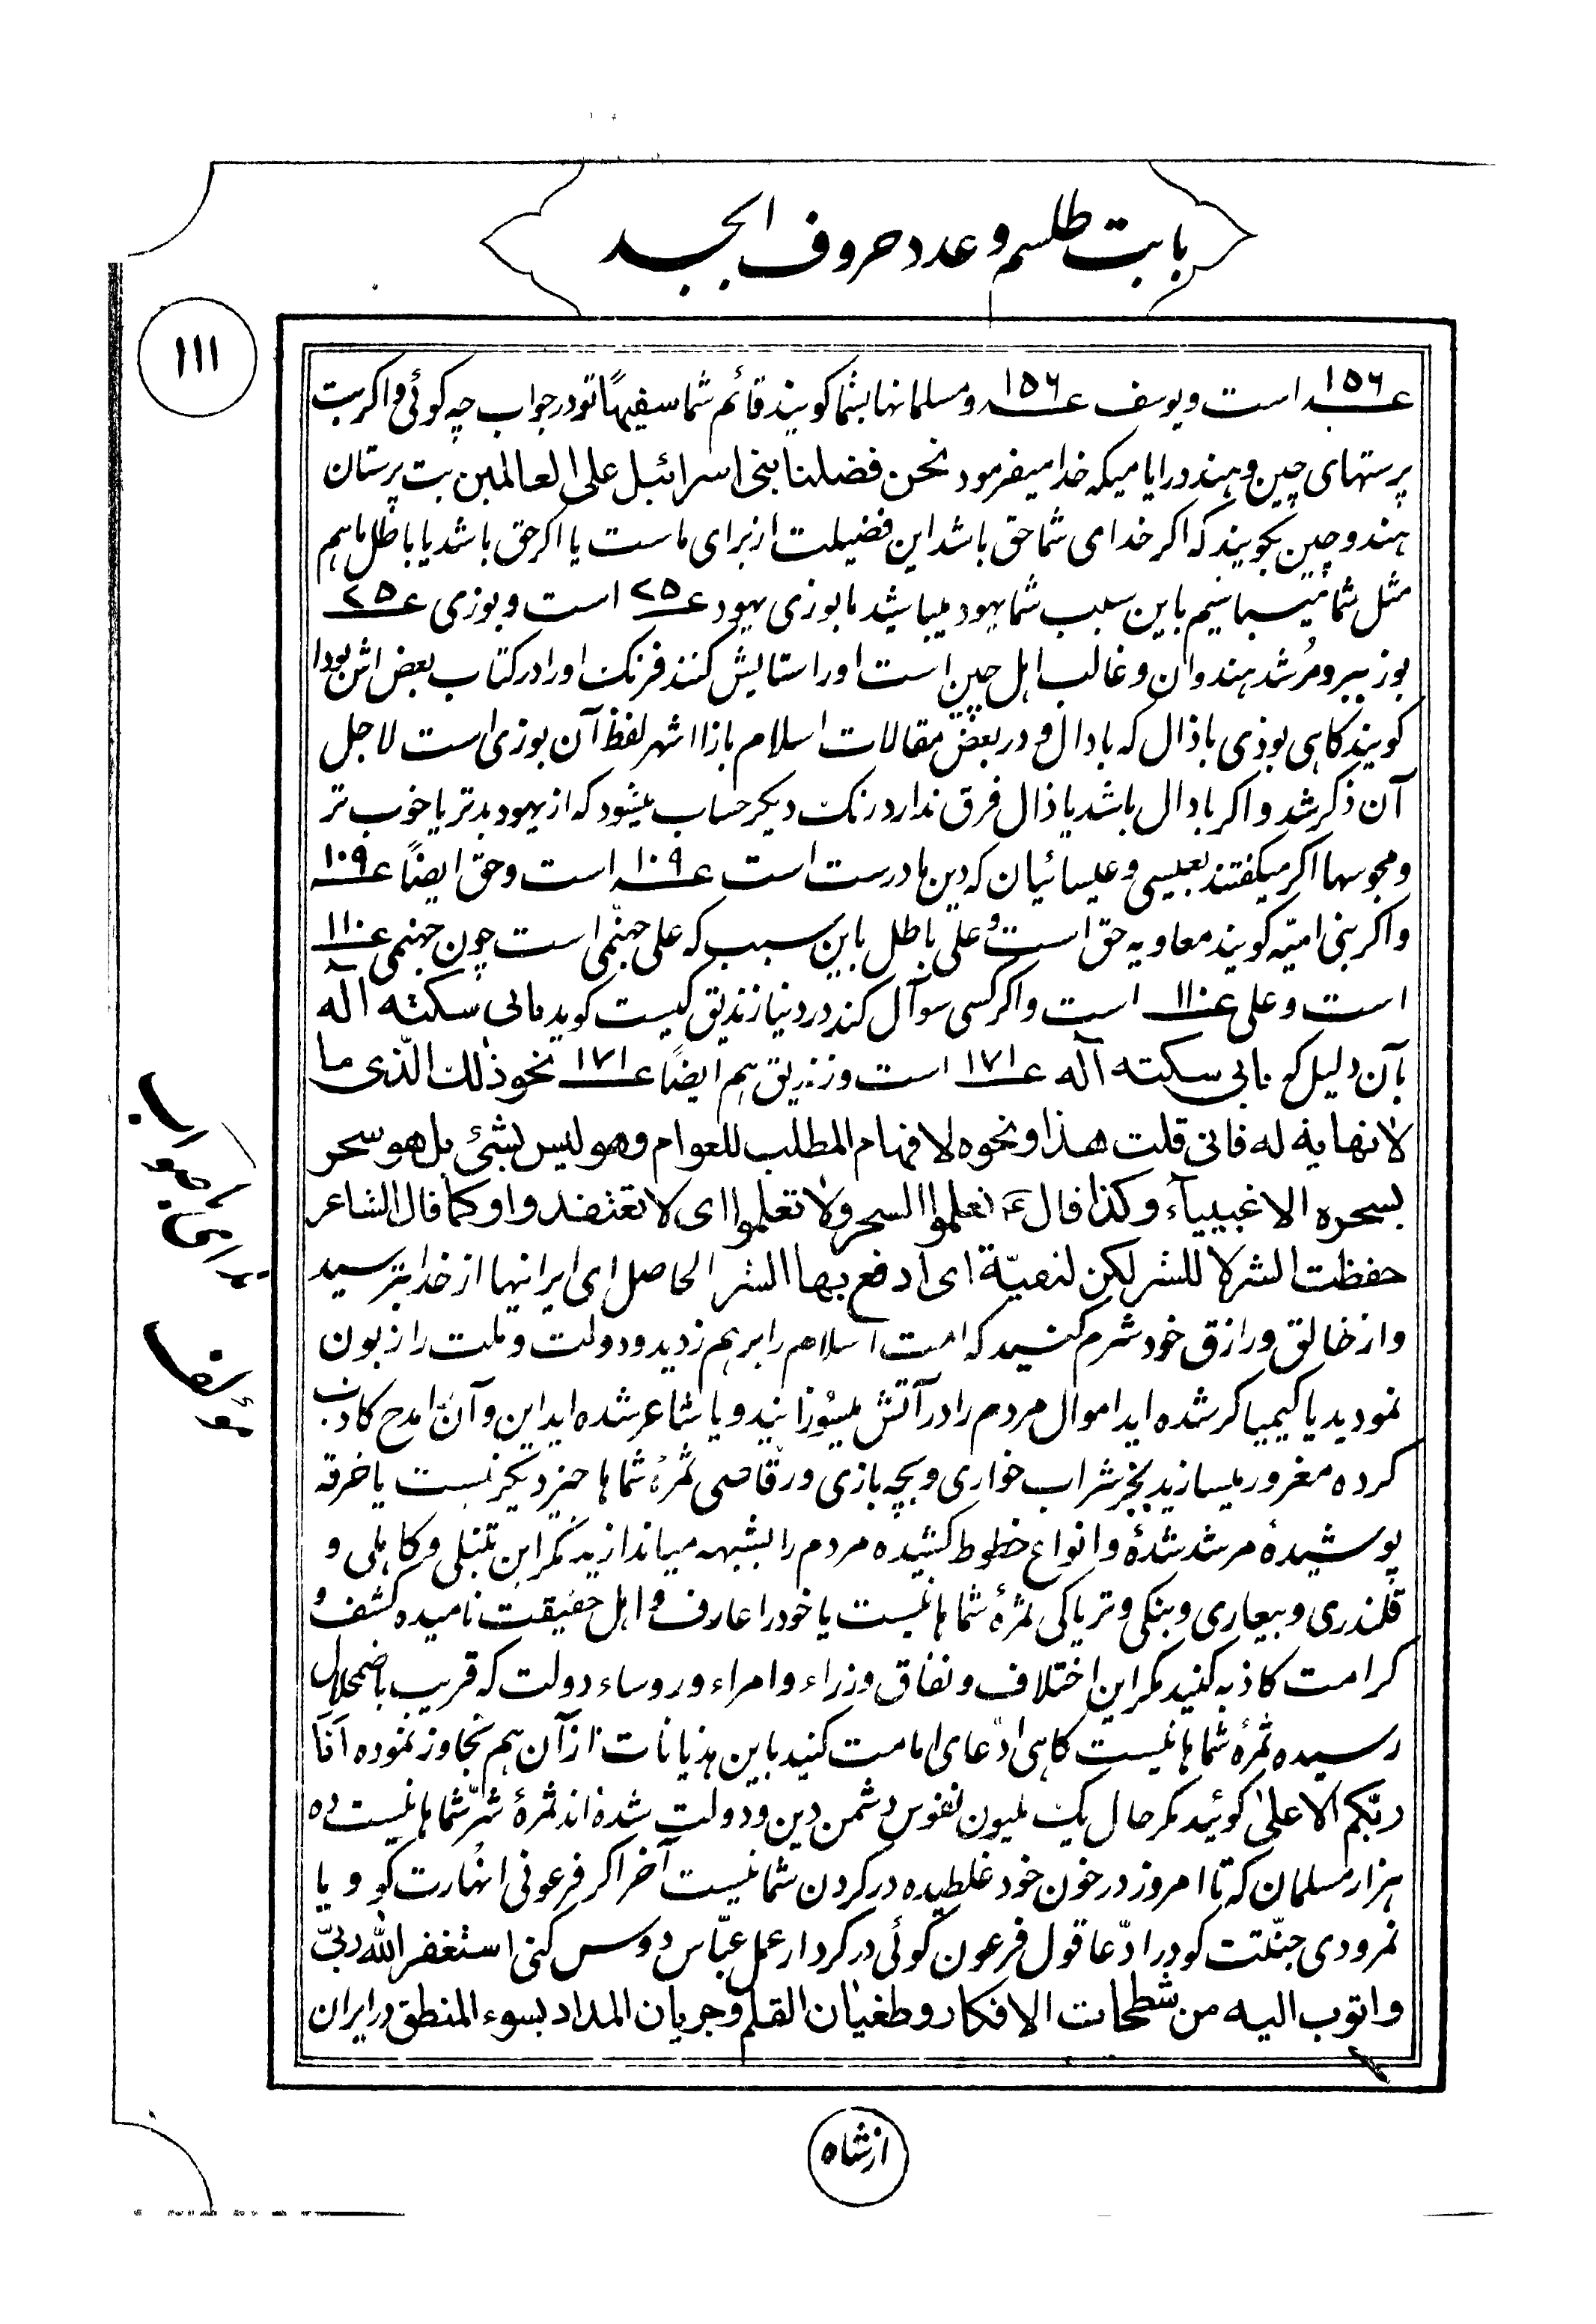 بابت طلسم و عدد حروف ابجد
۱۱۱
عـ۱۵۶ـدد است و یوسف عـ۱۵۶ـدد و مسلمانها بشما کویند قائم شما سفیهاً تو در جواب چه کوئی و اکر بت
پرستهای چین و هند در ایامیکه خدا میفرمود نحن فضلنا بنی اسرائیل علی العالمین بت پرستان
هند و چین بکویند که اکر خدای شما حق باشد این فضیلت از برای ماست یا اکر حق باشد یا باطل ما هم
مثل شما میباشیم باین سبب شما یهود میباشید ما بوزی یهود عـ۲۵ است و بوزی عـ۲۵
بوز پیر و مُرشد هندوان و غالب اهل چین است اورا ستایش کنند فرنک اورا در کتاب بعض اش بودا
کویند کاهی بوذی باذال که بادال و در بعض مقالات اسلام بازا اشهر لفظ آن بوزی است لاجل
آن ذکر شد و اکر بادال باشد یا ذال فرق ندارد رنک دیکر حساب میشود که از یهود بدتر یا خوب تر
و مجوسها اکر میکفتند بعیسی و عیسائیان که دین ما درست است عـ۱۰۹ است و حق ایضاً عـ۱۰۹
و اکر بنی امیّه کویند معاویه حق است و علی باطل باین سبب که علی جهنّمی است چون جهنمی عـ۱۱۰
است و علی عـ۱۱۰ است و اکر کسی سوآل کند در دنیا زندیق کیست کوید مانی سکته آله
بآن دلیل که مانی سکته آله عـ۱۷۱ است و زندیق هم ایضاً عـ۱۷۱ نحو ذلك الّذی ما
لانهایة له فانی قلت هذا و نحوه لافهام المطلب للعوام و هو لیس بشئ بل هو سحر
بسحره الاغبییآء و کذا قال ع تعلموا السحر ولا تعلموا ای لا تعتضدوا و کما قال الشاعر
حفظت الشر لا للشر لکن لنعیّة ای ادفع بها الشر الحاصل ای ایرانیها از خدا بترسید
و از خالق و رازق خود شرم کنید که امت اسلام را برهم زدید و دولت و ملت را زبون
نمودید یا کیمیا کر شده اید اموال مردم را در آتش میسوزانید و یا شاعر شده اید این و آن را مدح کاذب
کرده مغرور میسازید بجز شراب خواری و بچه بازی و رقاصی ثمرهٔ شماها چیز دیکر نیست یا خرقه
پوشیدهٔ مرشد شدهٔ و انواع خطوط کشیده مردم را بشبهه میاندازید مکر این تنبلی و کاهلی و
قلندری و بیعاری و بنکی و تریاکی ثمرهٔ شماها نیست یا خود را عارف و اهل حقیقت نامیده کشف و
کرامت کاذبه کنید مکر این اختلاف و نفاق وزراء و امراء و روساء دولت که قریب باضمحلال
رسیده ثمرهٔ شماها نیست کاهی ادّعای امامت کنید باین هذیانات از آن هم تجاوز نموده اَنَا
ربّکم الاعلیٰ کوئید مکر حال یک ملیون نفوس دشمن دین و دولت شده اند ثمرهٔ شرّ شماها نیست ده
هزار مسلمان که تا امروز در خون خود غلطیده در کردن شما نیست آخر اکر فرعونی انهارت کو و یا
نمرودی جنّتت کو در ادّعا قول فرعون کوئی در کردار عمل عبّاس دوس کنی استغفر الله ربّی
و اتوب الیه من شطحات الافکار و طغیان القلم و جریان المداد بسوء المنطق در ایران
باجواب
مؤلف
از شاه